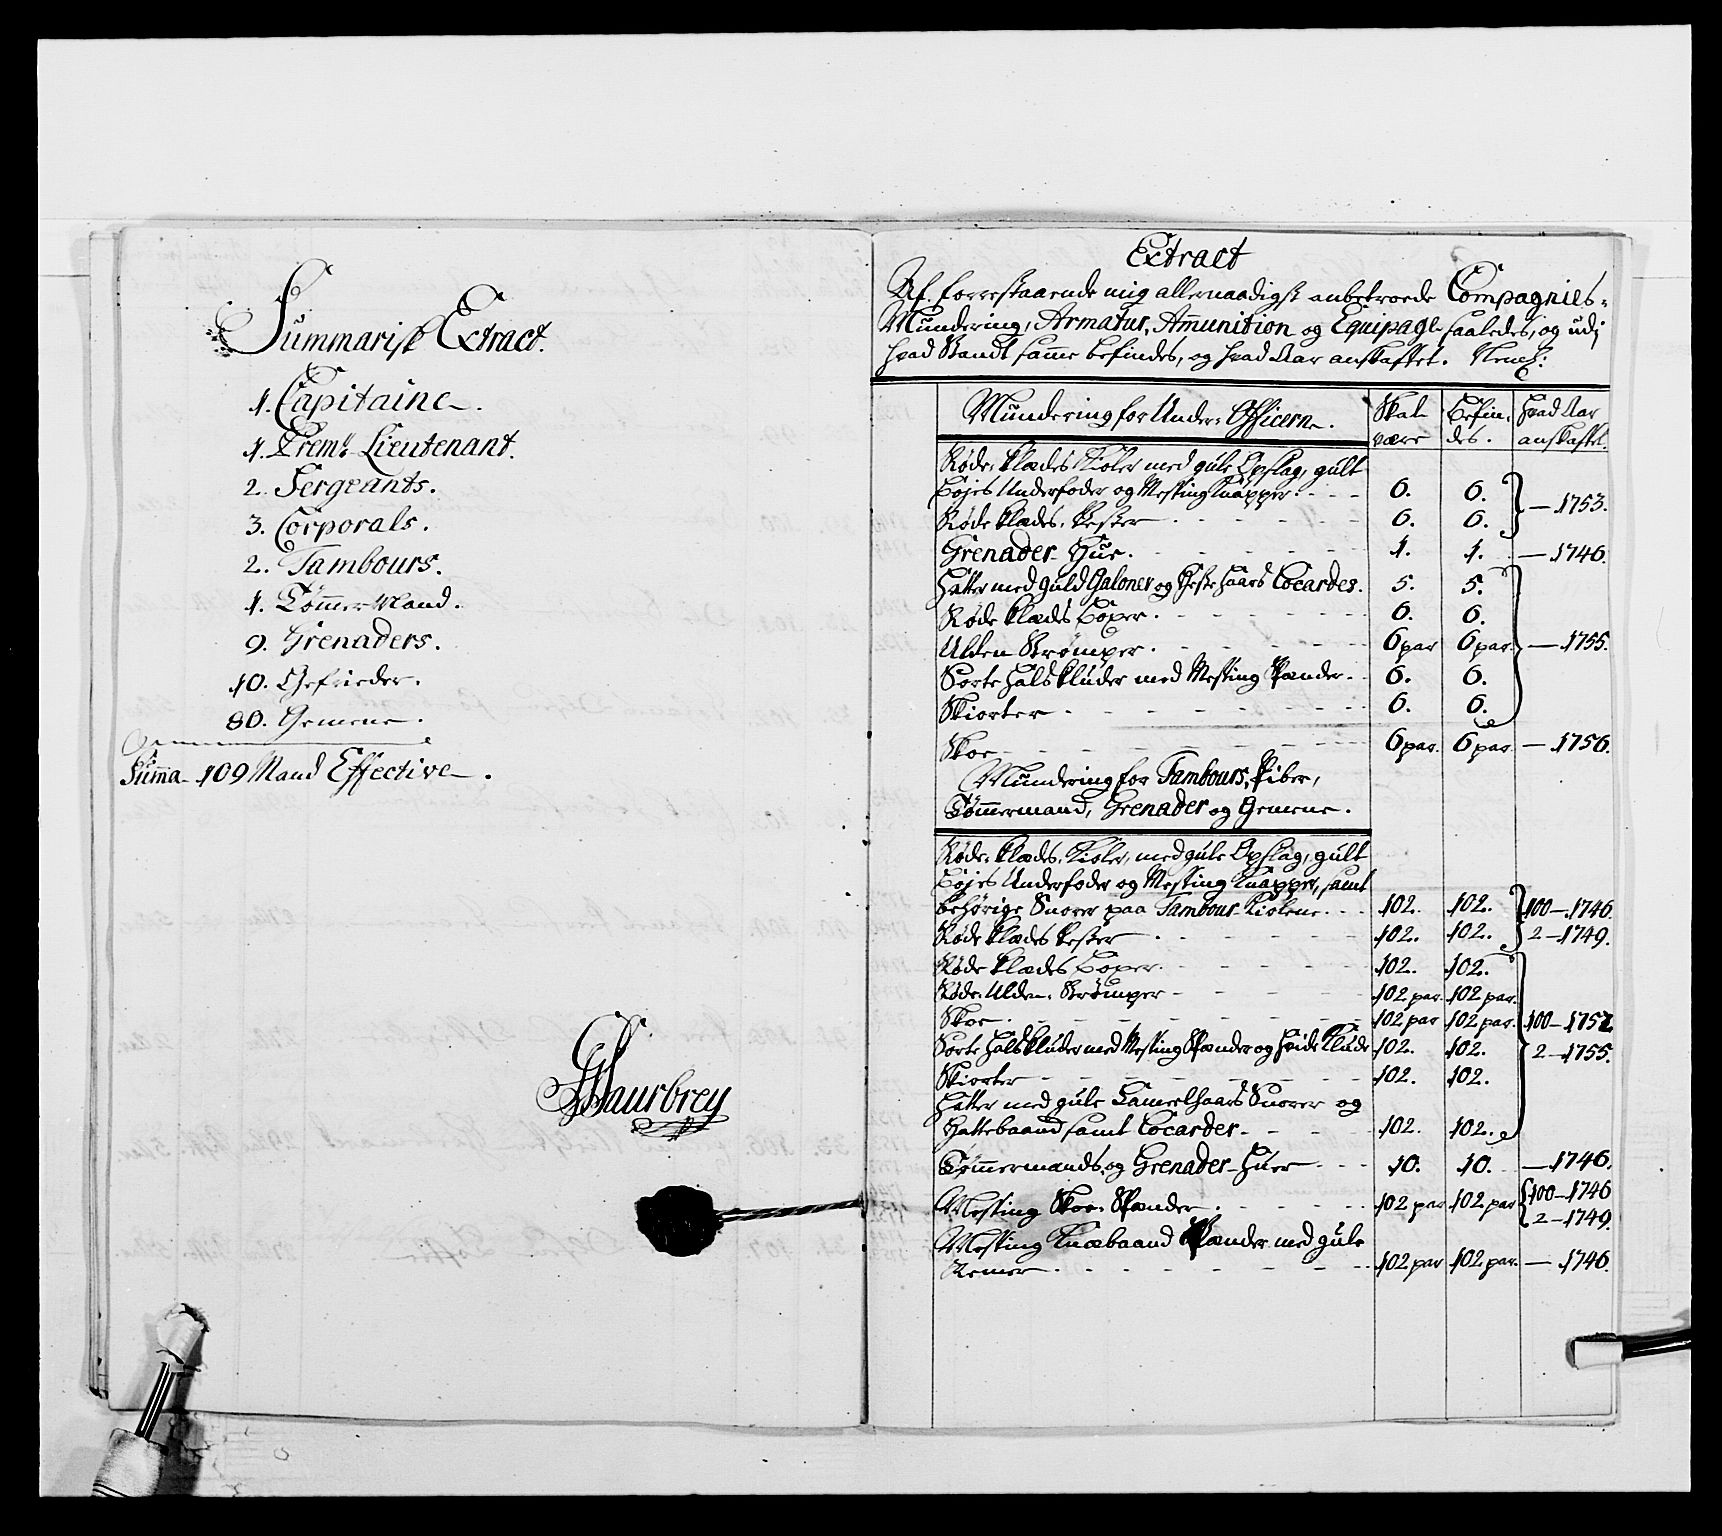 Summarisk Extract.
1. Capitaine.
1. Prem: Lieutenant.
2. Sergeants.
3. Corporals.
2. Tambours.
1. Tömmer Mand.
9. Grenaders.
10. Gefrieder.
80. Gemene.
Summa 109 Mand Effective.
Saurbrey
Extract
Af forrestaaende mig allernaadigst anbetroede Compagnies-
Mundering, Armatur, Amunition og Equipage saaledes, og udj
hvad Stand samme befindes, og hvad Aar anskaffet. Neml:
Mundering for Under-Officerne. Skal være Befindes. Hvad Aar anskaffet.
Røde Klædes Kioler med gule Opslag, gult
Bojes Underfoder og Messing Knapper. 6. 6. — 1753.
Røde Klædes Vester 6. 6.
Grenader Hue. 1. 1. — 1746.
Hatter med Guld Galoner og Heste Haars Cocardes. 5. 5.
Røde Klædes Boxer. 6. 6.
Ulden Strømper. 6 par 6 par. — 1755.
Sorte Halsklüder med Messing Spænder. 6. 6.
Skiorter 6. 6.
Skoe 6 par. 6 par — 1756.
Mundering for Tambours, Piber,
Tömmermand, Grenader og Gemene.
Røde Klædes Kioler, med gule Opslag, gült
Bojes Underfoder og Messing Knapper, samt
behörige Snorer paa Tambour Kiolene. 102. 102. 100 — 1746.
Røde Klædes Vester 102. 102. 2 — 1749.
Røde Klædes Boxer. 102. 102.
Røde Ulden Strømper 102 par. 102 par.
Skoe. 102 par 102 par. 100 — 1752
Sorte Halsklüder med Messing Spænder og Hvide Klüde 102. 102. 2 — 1755.
Skiorter 102. 102.
Hatter med gule Cameelhaars Snorer og
Hattebaand samt Cocarder 102. 102.
Tömmermands og Grenader Huer 10. 10. — 1746.
Messing Skoe-Spænder 102 par 102 par 100 — 1746
2 — 1749.
Messing Knæbaand Spænder med gule
Remer. 102 par 102 par. — 1746.